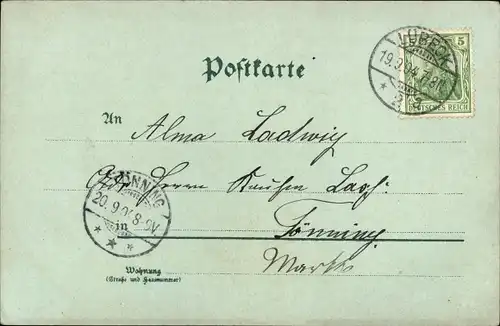 LÜBECK
19.9.04.7-8N
* 2 *
5
DEUTSCHES REICH
Postkarte
An
Alma Ladwig
Adr. Herrn Kaufm
TÖNNING
20.9.04.8-9V
Tönning
Markt
Wohnung
(Straße und Hausnummer)